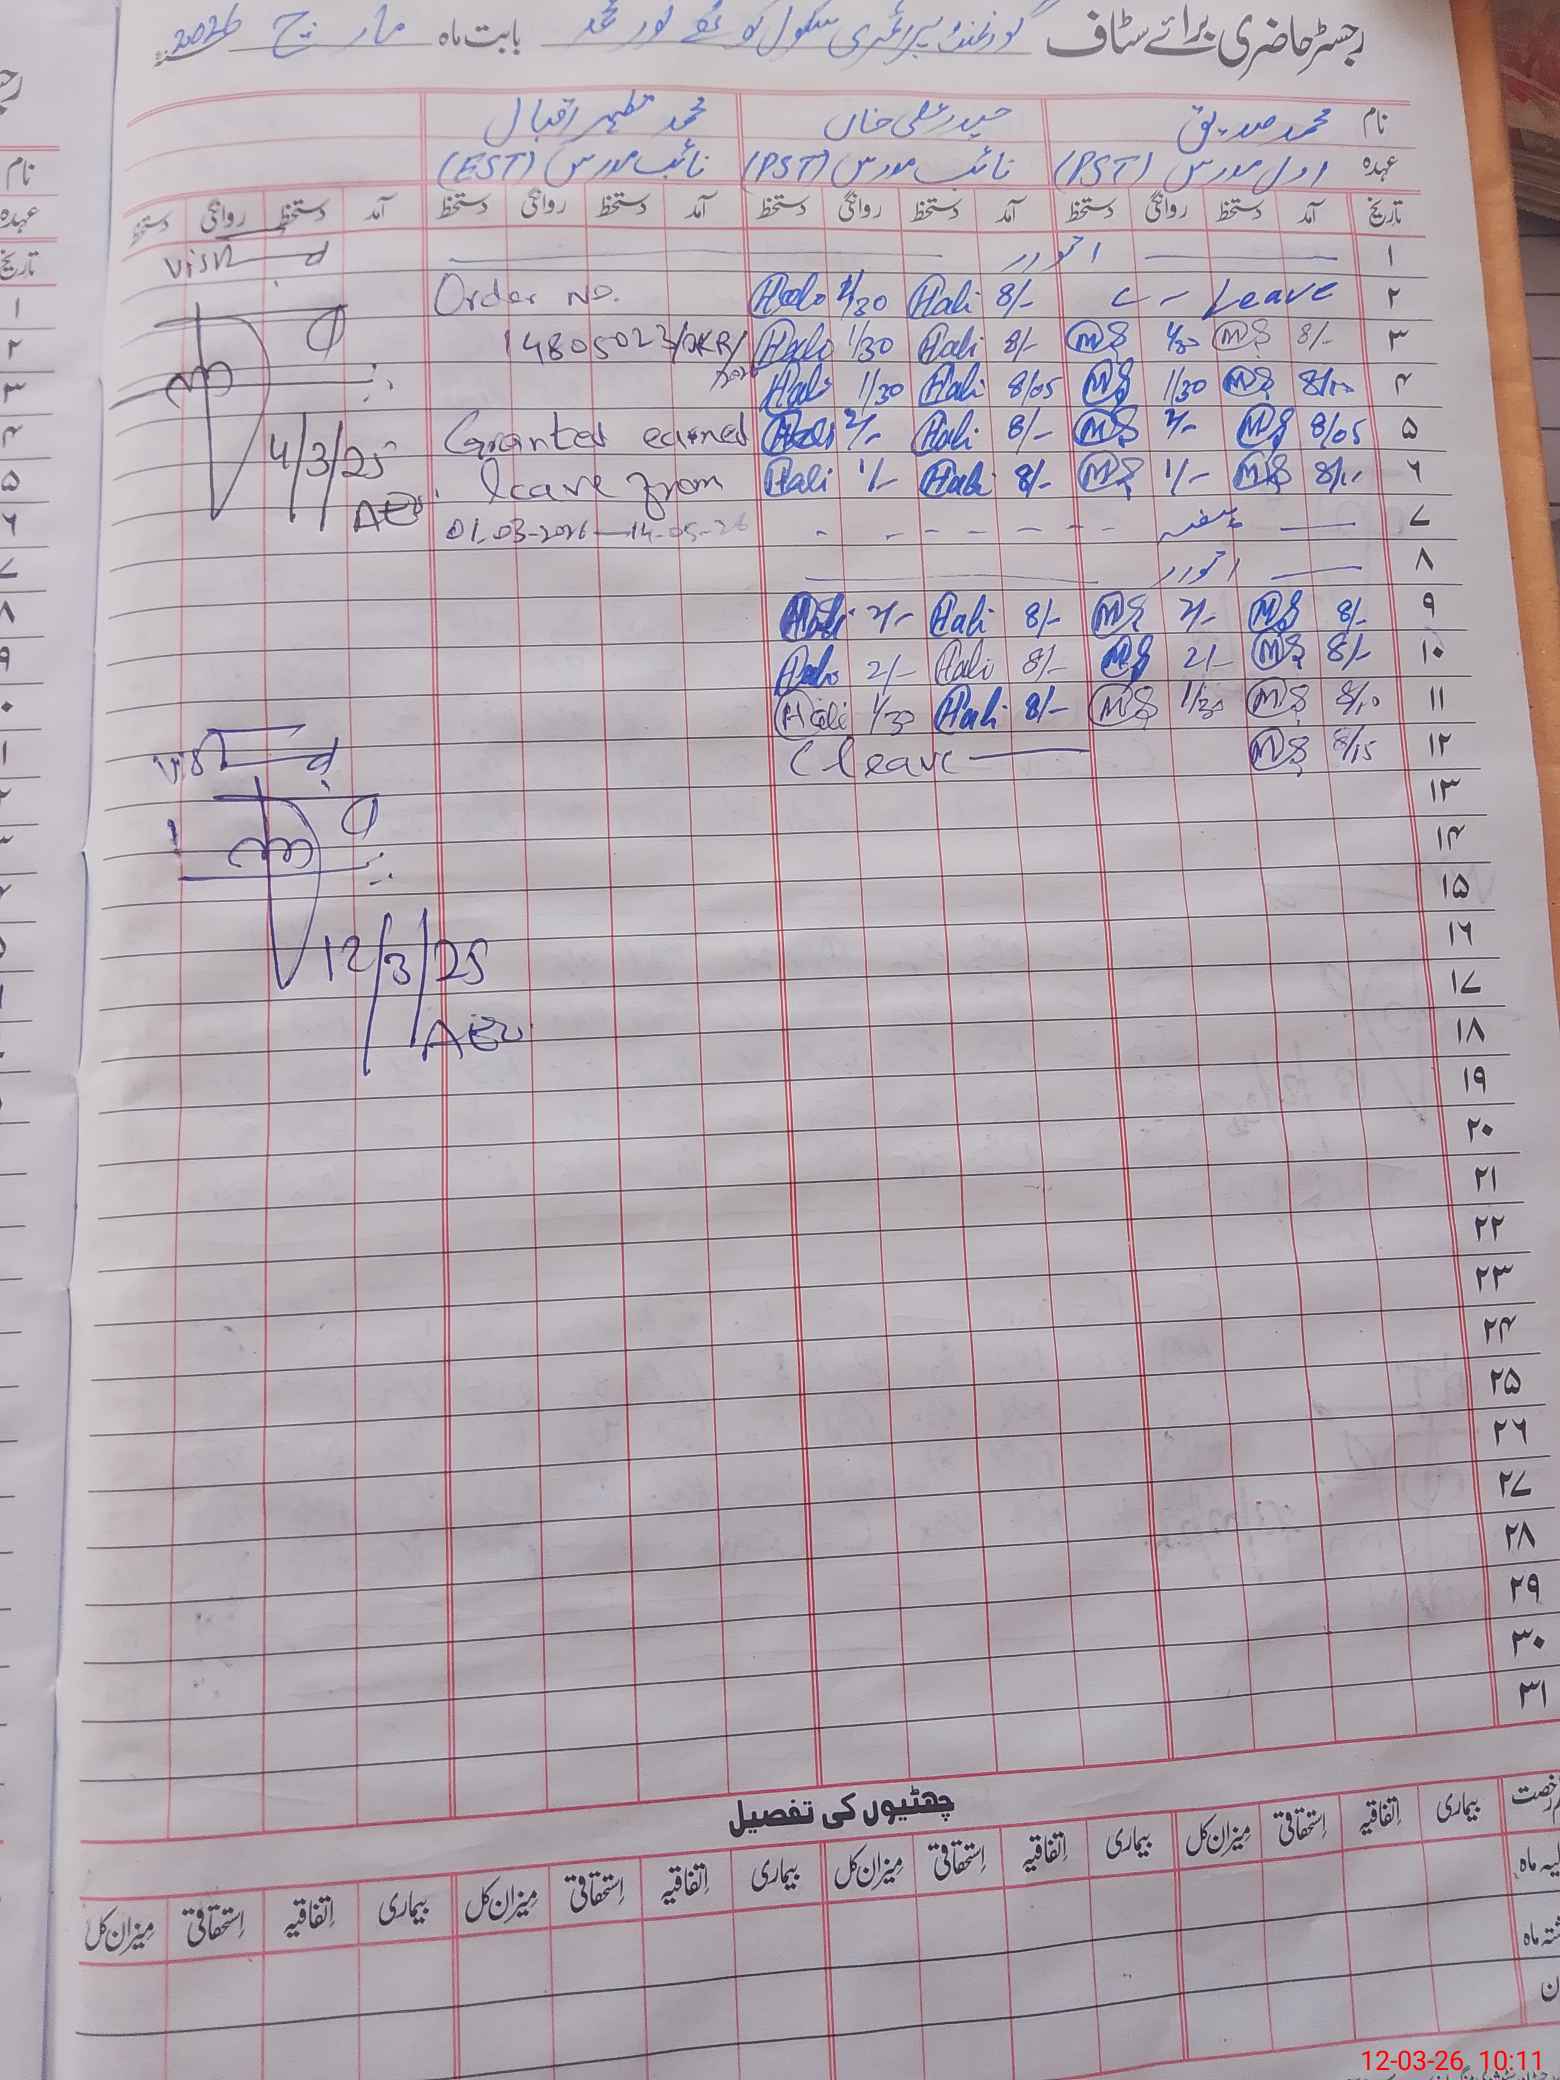 رجسٹر حاضری برائے سٹاف گورنمنٹ پرائمری سکول کوٹھے نور محمد بابت ماہ مارچ 2026
نام محمد صدیق حیدر علی خاں محمد اقبال
عہدہ اول مدرس (PST) نائب مدرس (PST) نائب مدرس (EST)
تاریخ آمد دستخط روانگی دستخط آمد دستخط روانگی دستخط آمد دستخط روانگی دستخط آمد دستخط روانگی دستخط
۱ اتوار Visit
۲ C - Leave 8/- Hali 1/30 Order No.
۳ 8/- MS 1/30 MS 8/- Hali 1/30 Hali 14805023/OKR/2026
۴ MS 1/30 MS 8/05 Hali 1/30 Hali
۵ 8/05 MS 2/- MS 8/- Hali 2/- Granted earned 4/3/25
۶ MS 1/- MS 8/- Hali 1/- Hali leave from AEO
۷ ہفتہ 01-03-2026 — 14-05-26
۸ اتوار
۹ 8/- MS 2/- MS 8/- Hali 2/- Hali
۱۰ 8/- MS 2/- MS 8/- Hali 2/-
۱۱ 8/10 MS 1/30 MS 8/- Hali 1/30 Hali
۱۲ 8/15 MS C leave Visit
۱۳
۱۴
۱۵
۱۶ 12/3/25
۱۷
۱۸ AEO
۱۹
۲۰
۲۱
۲۲
۲۳
۲۴
۲۵
۲۶
۲۷
۲۸
۲۹
۳۰
۳۱
چھٹیوں کی تفصیل
رخصت بیماری اِتفاقیہ اِستحقاقی مِیزان کل بیماری اِتفاقیہ اِستحقاقی مِیزان کل بیماری اِتفاقیہ اِستحقاقی مِیزان کل بیماری اِتفاقیہ اِستحقاقی مِیزان کل
ماہ
ماہ
12-03-26, 10:11